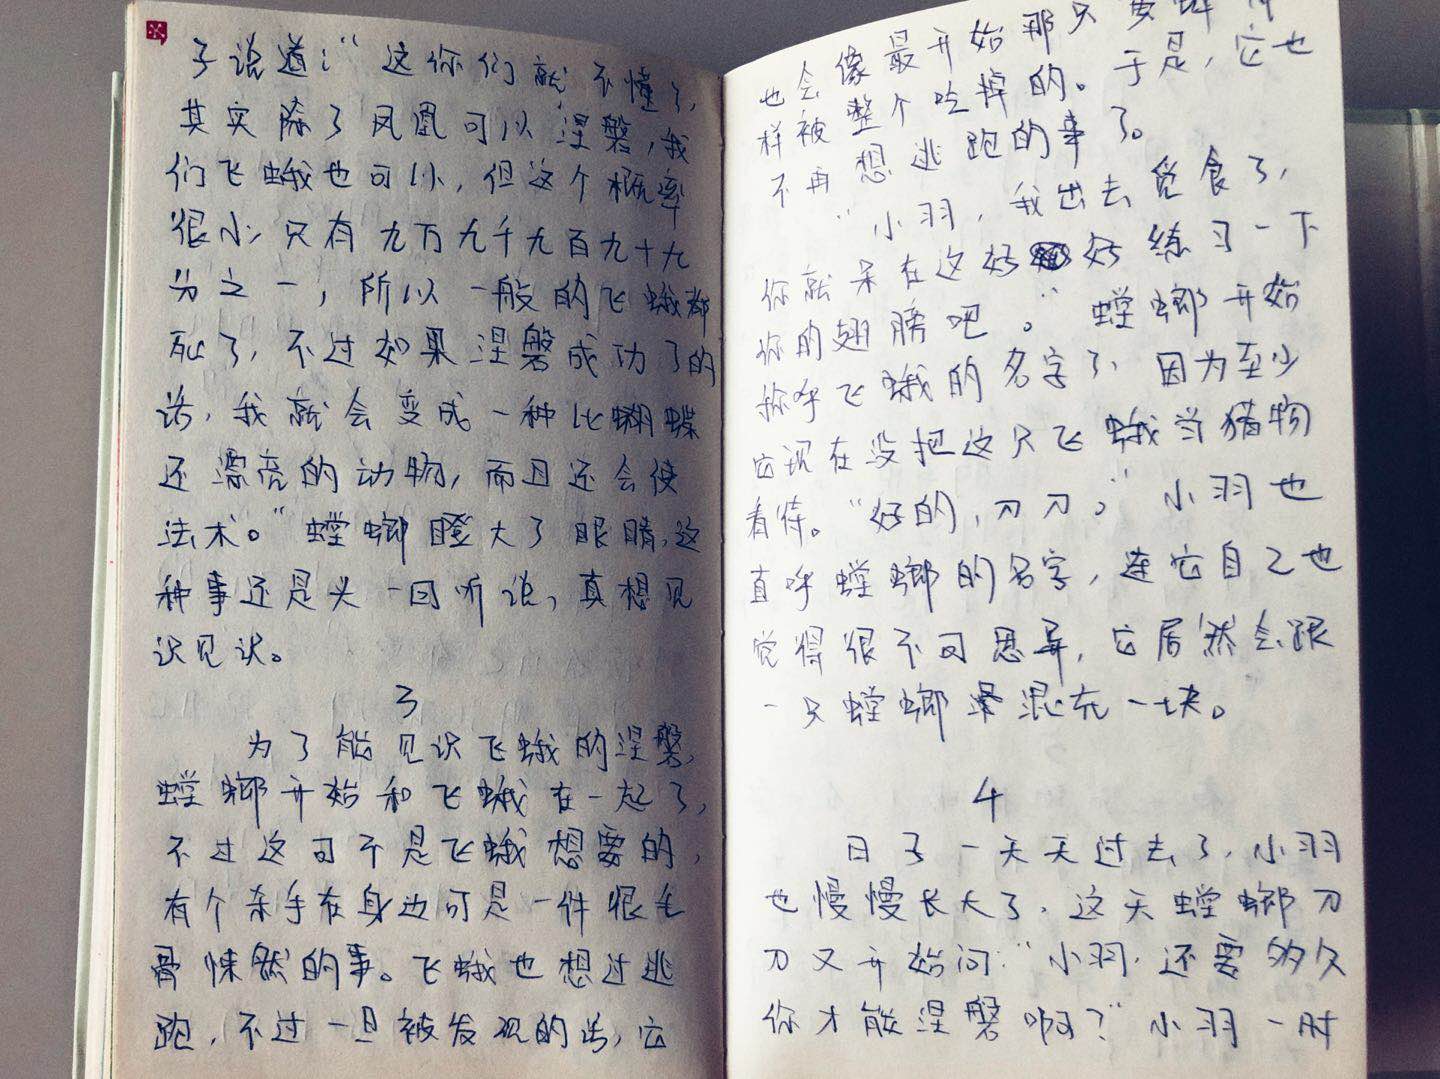 子说道:“这你们就不懂了,
其实除了凤凰可以涅磐,我
们飞蛾也可以,但这个概率
很小,只有九万九千九百九十九
分之一,所以一般的飞蛾都
死了,不过如果涅磐成功了的
话,我就会变成一种比蝴蝶
还漂亮的动物,而且还会使
法术。”螳螂瞪大了眼睛,这
种事还是头一回听说,真想见
识见识。
3
为了能见识飞蛾的涅磐,
螳螂开始和飞蛾在一起了,
不过这可不是飞蛾想要的,
有个杀手在身边可是一件很毛
骨悚然的事。飞蛾也想过逃
跑,不过一旦被发现的话,它
也会像最开始那只
样被整个吃掉的。于是,它也
不再想逃跑的事了。
“小羽,我出去觅食了,
你就呆在这好好练习一下
你的翅膀吧。”螳螂开始
称呼飞蛾的名字了,因为至少
它现在没把这只飞蛾当猎物
看待。“好的,刀刀。”小羽也
直呼螳螂的名字,连它自己也
觉得很不可思异,它居然会跟
一只螳螂混在一块。
4
日子一天天过去了,小羽
也慢慢长大了,这天螳螂刀
刀又开始问:“小羽,还要多久
你才能涅磐啊?”小羽一时